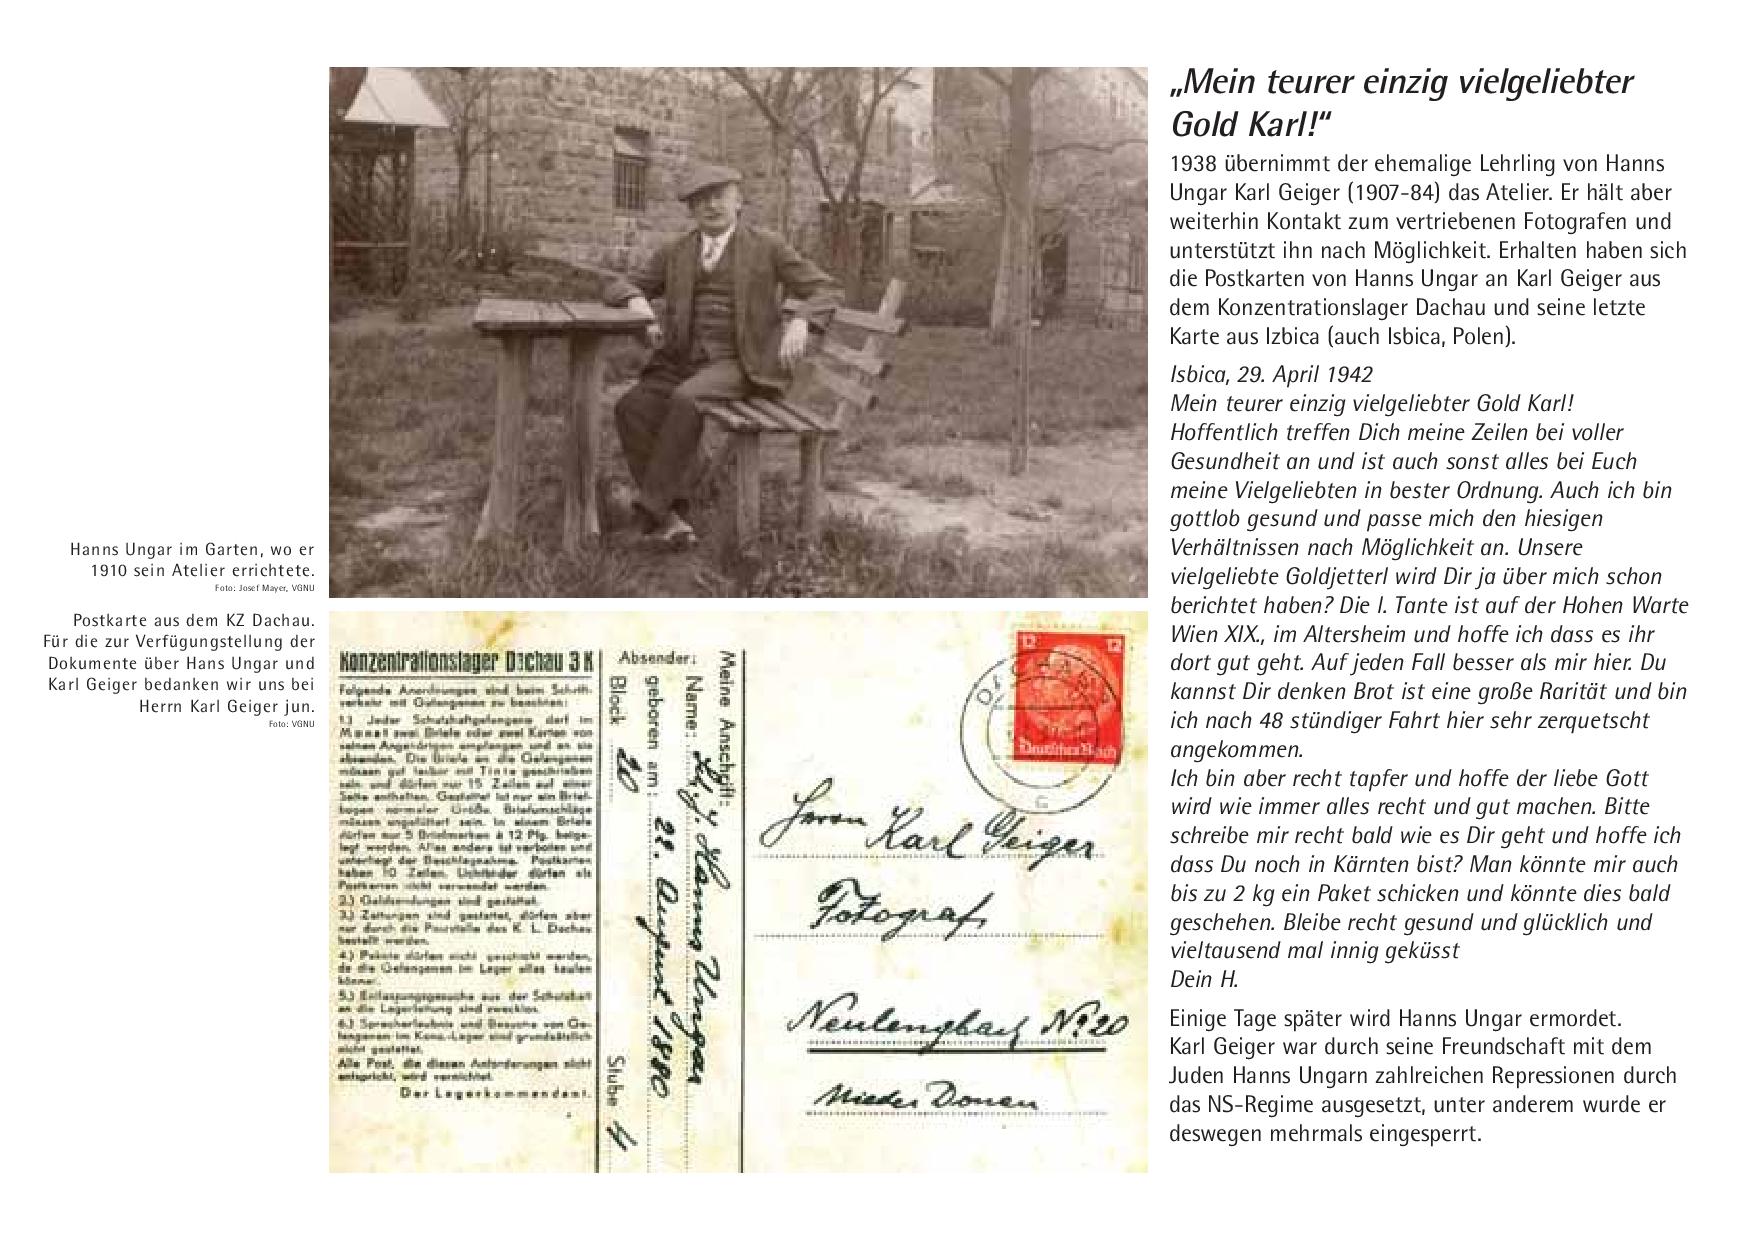 „Mein teurer einzig vielgeliebter
Gold Karl!“
1938 übernimmt der ehemalige Lehrling von Hanns
Ungar Karl Geiger (1907-84) das Atelier. Er hält aber
weiterhin Kontakt zum vertriebenen Fotografen und
unterstützt ihn nach Möglichkeit. Erhalten haben sich
die Postkarten von Hanns Ungar an Karl Geiger aus
dem Konzentrationslager Dachau und seine letzte
Karte aus Izbica (auch Isbica, Polen).
Isbica, 29. April 1942
Mein teurer einzig vielgeliebter Gold Karl!
Hoffentlich treffen Dich meine Zeilen bei voller
Gesundheit an und ist auch sonst alles bei Euch
meine Vielgeliebten in bester Ordnung. Auch ich bin
gottlob gesund und passe mich den hiesigen
Verhältnissen nach Möglichkeit an. Unsere
vielgeliebte Goldjetterl wird Dir ja über mich schon
berichtet haben? Die l. Tante ist auf der Hohen Warte
Wien XIX., im Altersheim und hoffe ich dass es ihr
dort gut geht. Auf jeden Fall besser als mir hier. Du
kannst Dir denken Brot ist eine große Rarität und bin
ich nach 48 stündiger Fahrt hier sehr zerquetscht
angekommen.
Ich bin aber recht tapfer und hoffe der liebe Gott
wird wie immer alles recht und gut machen. Bitte
schreibe mir recht bald wie es Dir geht und hoffe ich
dass Du noch in Kärnten bist? Man könnte mir auch
bis zu 2 kg ein Paket schicken und könnte dies bald
geschehen. Bleibe recht gesund und glücklich und
vieltausend mal innig geküsst
Dein H.
Einige Tage später wird Hanns Ungar ermordet.
Karl Geiger war durch seine Freundschaft mit dem
Juden Hanns Ungarn zahlreichen Repressionen durch
das NS-Regime ausgesetzt, unter anderem wurde er
deswegen mehrmals eingesperrt.
Hanns Ungar im Garten, wo er
1910 sein Atelier errichtete.
Foto: Josef Mayer, VGNU
Postkarte aus dem KZ Dachau.
Für die zur Verfügungstellung der
Dokumente über Hans Ungar und
Karl Geiger bedanken wir uns bei
Herrn Karl Geiger jun.
Foto: VGNU
Konzentrationslager Dachau 3 K
Folgende Anordnungen sind beim Schrift-
verkehr mit Gefangenen zu beachten:
1.) Jeder Schutzhaftgefangene darf im
Monat zwei Briefe oder zwei Karten von
seinen Angehörigen empfangen und an sie
absenden. Die Briefe an die Gefangenen
müssen gut lesbar mit Tinte geschrieben
sein und dürfen nur 15 Zeilen auf einer
Seite enthalten. Gestattet ist nur ein Brief-
bogen normaler Größe. Briefumschläge
müssen ungefüttert sein. In einem Briefe
dürfen nur 5 Briefmarken à 12 Pfg. beige-
legt werden. Alles andere ist verboten und
unterliegt der Beschlagnahme. Postkarten
haben 10 Zeilen. Lichtbilder dürfen als
Postkarten nicht verwendet werden.
2.) Geldsendungen sind gestattet.
3.) Zeitungen sind gestattet, dürfen aber
nur durch die Poststelle des K. L. Dachau
bestellt werden.
4.) Pakete dürfen nicht geschickt werden,
da die Gefangenen im Lager alles kaufen
können.
5.) Entlassungsgesuche aus der Schutzhaft
an die Lagerleitung sind zwecklos.
6.) Sprecherlaubnis und Besuche von Ge-
fangenen im Konz.-Lager sind grundsätzlich
nicht gestattet.
Alle Post, die diesen Anforderungen nicht
entspricht, wird vernichtet.
Der Lagerkommandant.
Meine Anschrift:
Absender:
Name: Hanns Ungar
geboren am: 28. August 1880
Block 20 Stube 4
12 12
Deutsches Reich
DACHAU
c
Herrn Karl Geiger
Fotograf
Neulengbach No 20
Nieder Donau